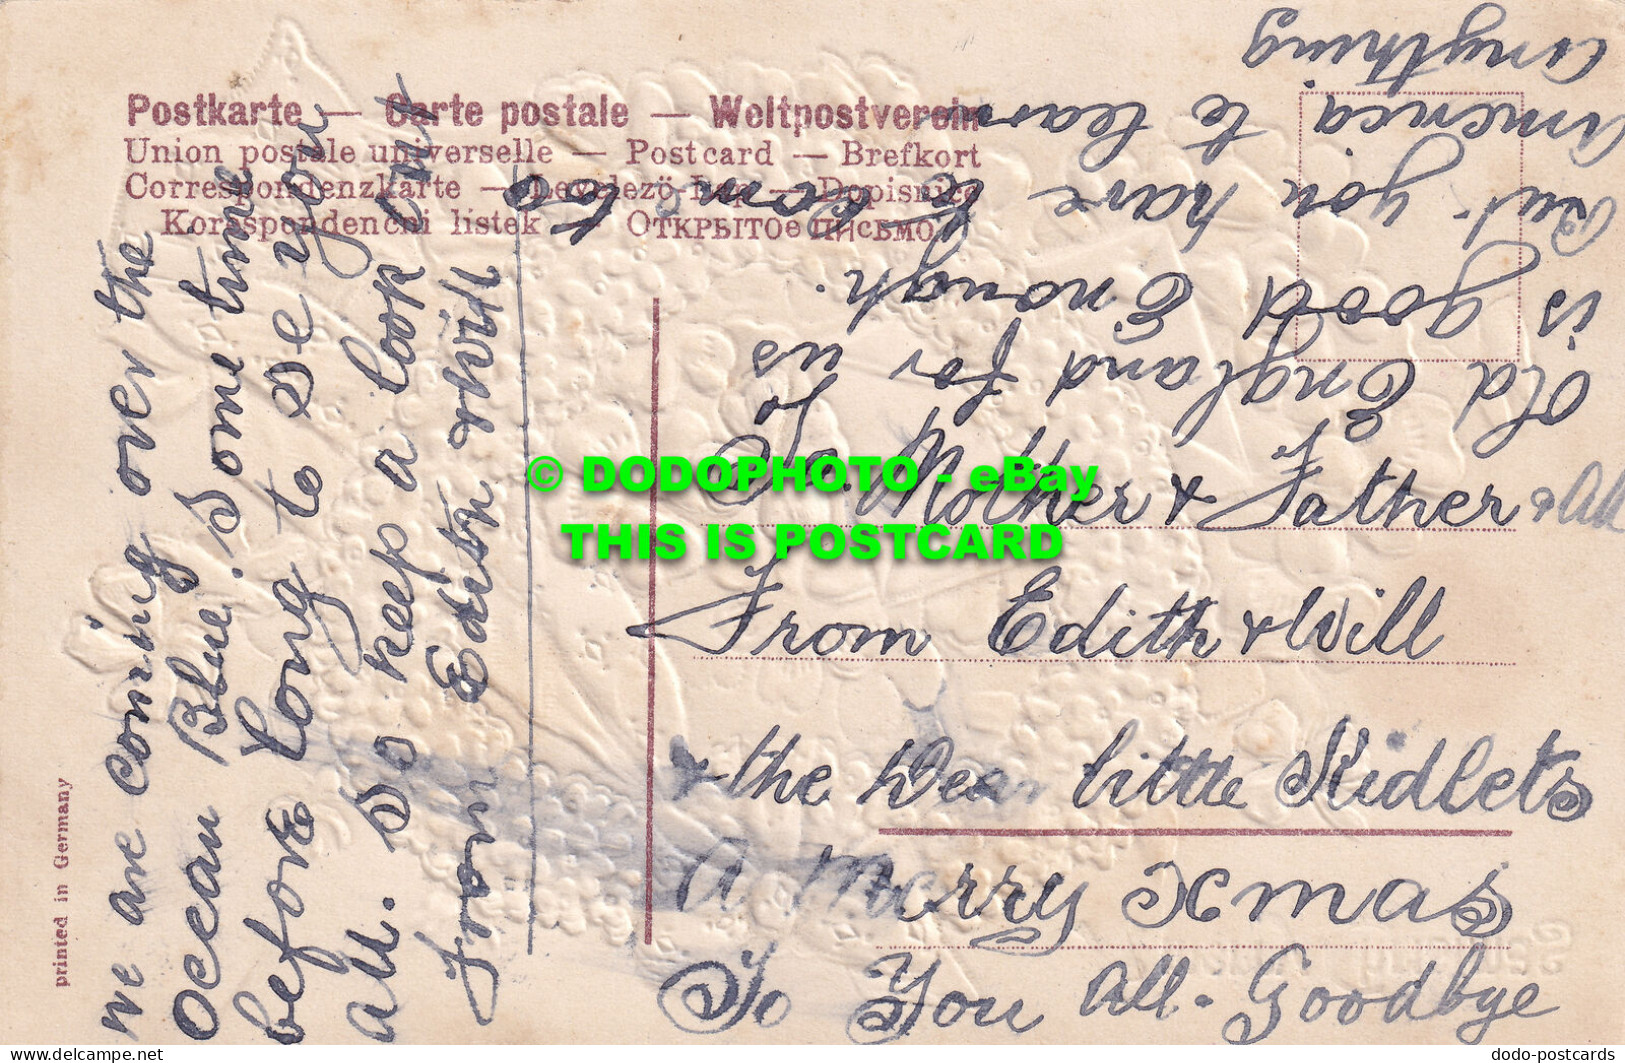 Postkarte — Carte postale — Weltpostverein
Union postale universelle — Postcard — Brefkort
Correspondenzkarte — Levelezö-Lap — Dopisnice
Korespondenční listek — ОТКРЫТОЕ ПИСЬМО
printed in Germany
we are coming over the
Ocean Blue. Some time
before long to se you
all. So keep a look out
From Edith & Will
To. Mother & Father & All
From Edith & Will
& the Dear little Kidlets
A Merry Xmas
To You All. Goodbye
Old England for us
is good Enough.
But you have to Come to
America to learn
anything
© DODOPHOTO - eBay
THIS IS POSTCARD
dodo-postcards